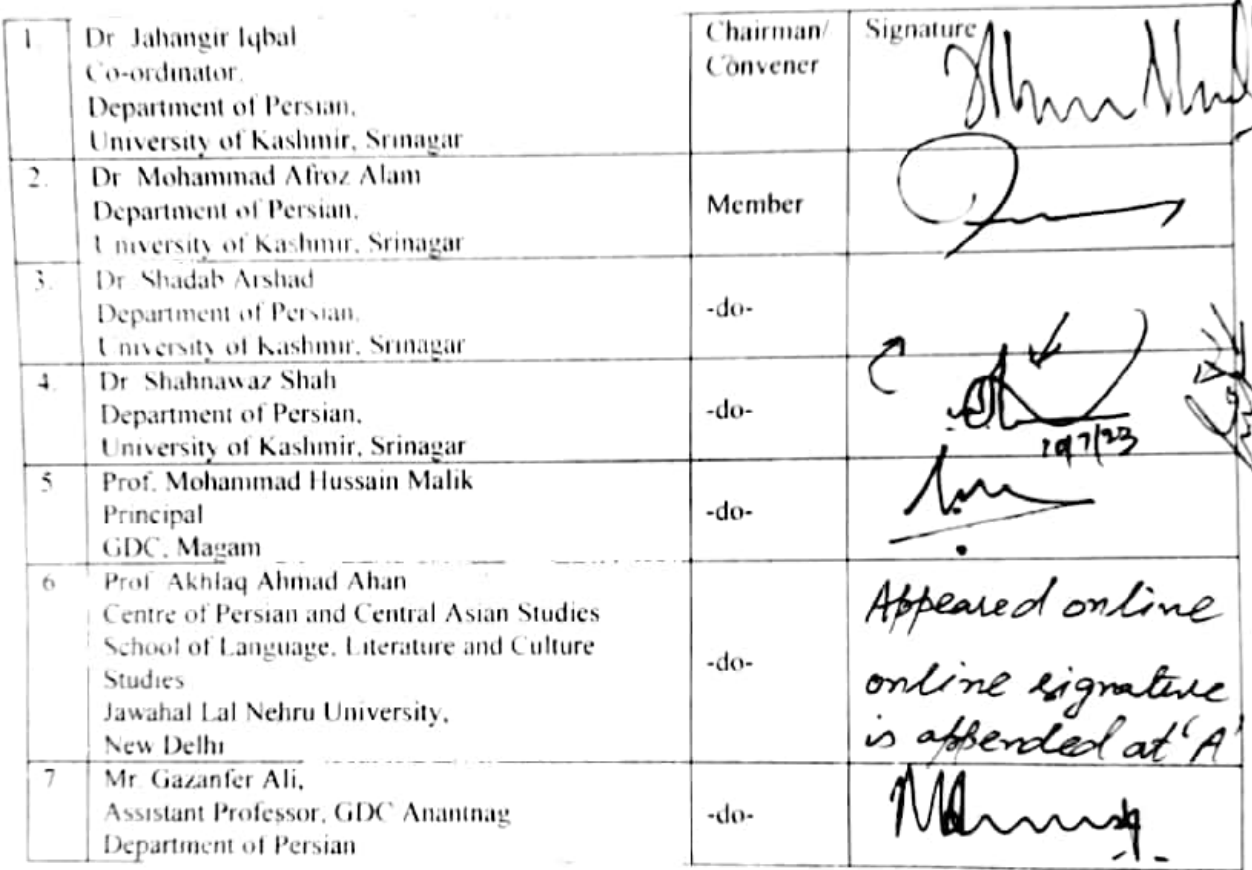 1. Dr Jahangir Iqbal
Co-ordinator,
Department of Persian,
University of Kashmir, Srinagar
Chairman/
Convener
Signature
2. Dr Mohammad Afroz Alam
Department of Persian,
University of Kashmir, Srinagar
Member
3. Dr Shadab Arshad
Department of Persian,
University of Kashmir, Srinagar
-do-
4. Dr Shahnawaz Shah
Department of Persian,
University of Kashmir, Srinagar
-do-
5 Prof. Mohammad Hussain Malik
Principal
GDC, Magam
-do-
6 Prof Akhlaq Ahmad Ahan
Centre of Persian and Central Asian Studies
School of Language, Literature and Culture
Studies
Jawahal Lal Nehru University,
New Delhi
-do-
Appeared online
online signature
is appended at 'A'
7 Mr. Gazanfer Ali,
Assistant Professor, GDC Anantnag
Department of Persian
-do-